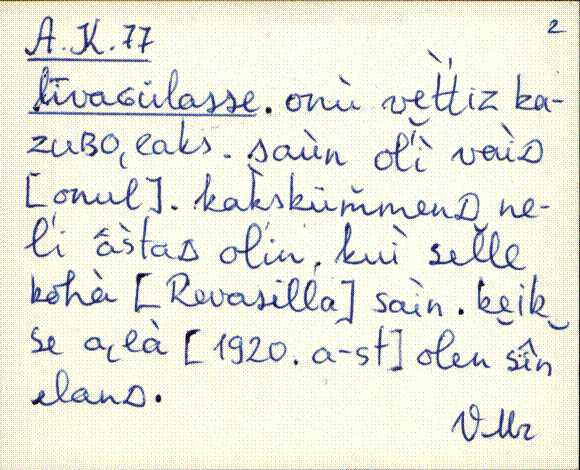 2
A.K.77
līvaGülasse. onù vèt̆tiz ka-
zuBO̦laks. saùn olì̆ vaìD
[onul]. kakskümmenD ne-
lì âstaD olìn, kuì sel̆le
kohà [Revasilla] saìn. kĕik
se a̦là [1920. a-st] olen sîn
elanD.
VMr